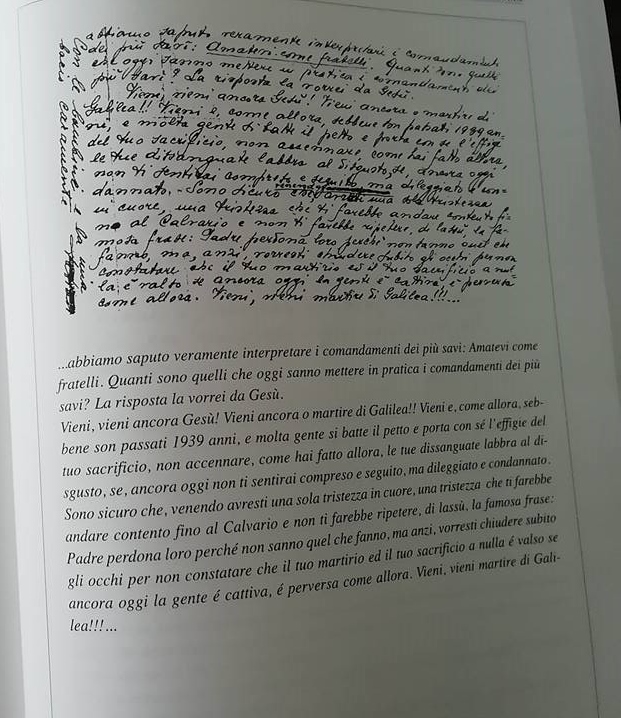 abbiamo saputo veramente interpretare i comandamenti
dei più savi: Amatevi come fratelli. Quanti sono quelli
che oggi sanno mettere in pratica i comandamenti dei
più savi? La risposta la vorrei da Gesù.
Vieni, vieni ancora Gesù! Vieni ancora o martire di
Galilea!! Vieni e, come allora, sebbene son passati 1939 an-
ni, e molta gente si batte il petto e porta con se l'effigie
del tuo sacrificio, non accennare, come hai fatto allora,
le tue dissanguate labbra al disgusto, se, ancora oggi
non ti sentirai compreso e seguito, ma dileggiato e con-
dannato. Sono sicuro che, venendo avresti una sola tristezza
in cuore, una tristezza che ti farebbe andare contento fi-
no al Calvario e non ti farebbe ripetere, di lassù, la fa-
mosa frase: Padre, perdona loro perchè non sanno quel che
fanno, ma, anzi, vorresti chiudere subito gli occhi per non
constatare che il tuo martirio ed il tuo sacrificio a nul-
la è valso se ancora oggi la gente è cattiva, è perversa
come allora. Vieni, vieni martire di Galilea!!!...
baci caramente
...abbiamo saputo veramente interpretare i comandamenti dei più savi: Amatevi come
fratelli. Quanti sono quelli che oggi sanno mettere in pratica i comandamenti dei più
savi? La risposta la vorrei da Gesù.
Vieni, vieni ancora Gesù! Vieni ancora o martire di Galilea!! Vieni e, come allora, seb-
bene son passati 1939 anni, e molta gente si batte il petto e porta con sé l'effigie del
tuo sacrificio, non accennare, come hai fatto allora, le tue dissanguate labbra al di-
sgusto, se, ancora oggi non ti sentirai compreso e seguito, ma dileggiato e condannato.
Sono sicuro che, venendo avresti una sola tristezza in cuore, una tristezza che ti farebbe
andare contento fino al Calvario e non ti farebbe ripetere, di lassù, la famosa frase:
Padre perdona loro perché non sanno quel che fanno, ma anzi, vorresti chiudere subito
gli occhi per non constatare che il tuo martirio ed il tuo sacrificio a nulla é valso se
ancora oggi la gente é cattiva, é perversa come allora. Vieni, vieni martire di Gali-
lea!!!...